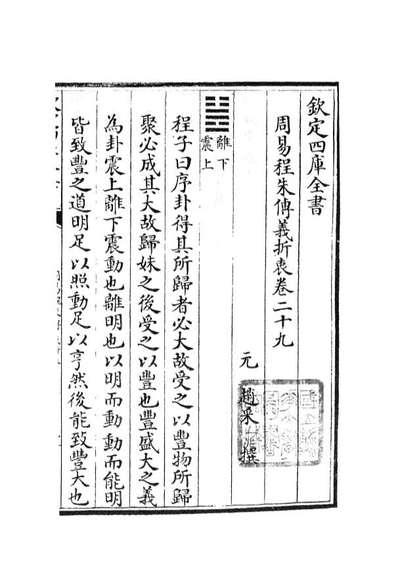 欽定四庫全書
周易程朱傳義折衷卷二十九
元 趙采 撰
離下
震上
程子曰序卦得其所歸者必大故受之以豐物所歸
聚必成其大故歸妹之後受之以豐也豐盛大之義
為卦震上離下震動也離明也以明而動動而能明
皆致豐之道明足以照動足以亨然後能致豐大也